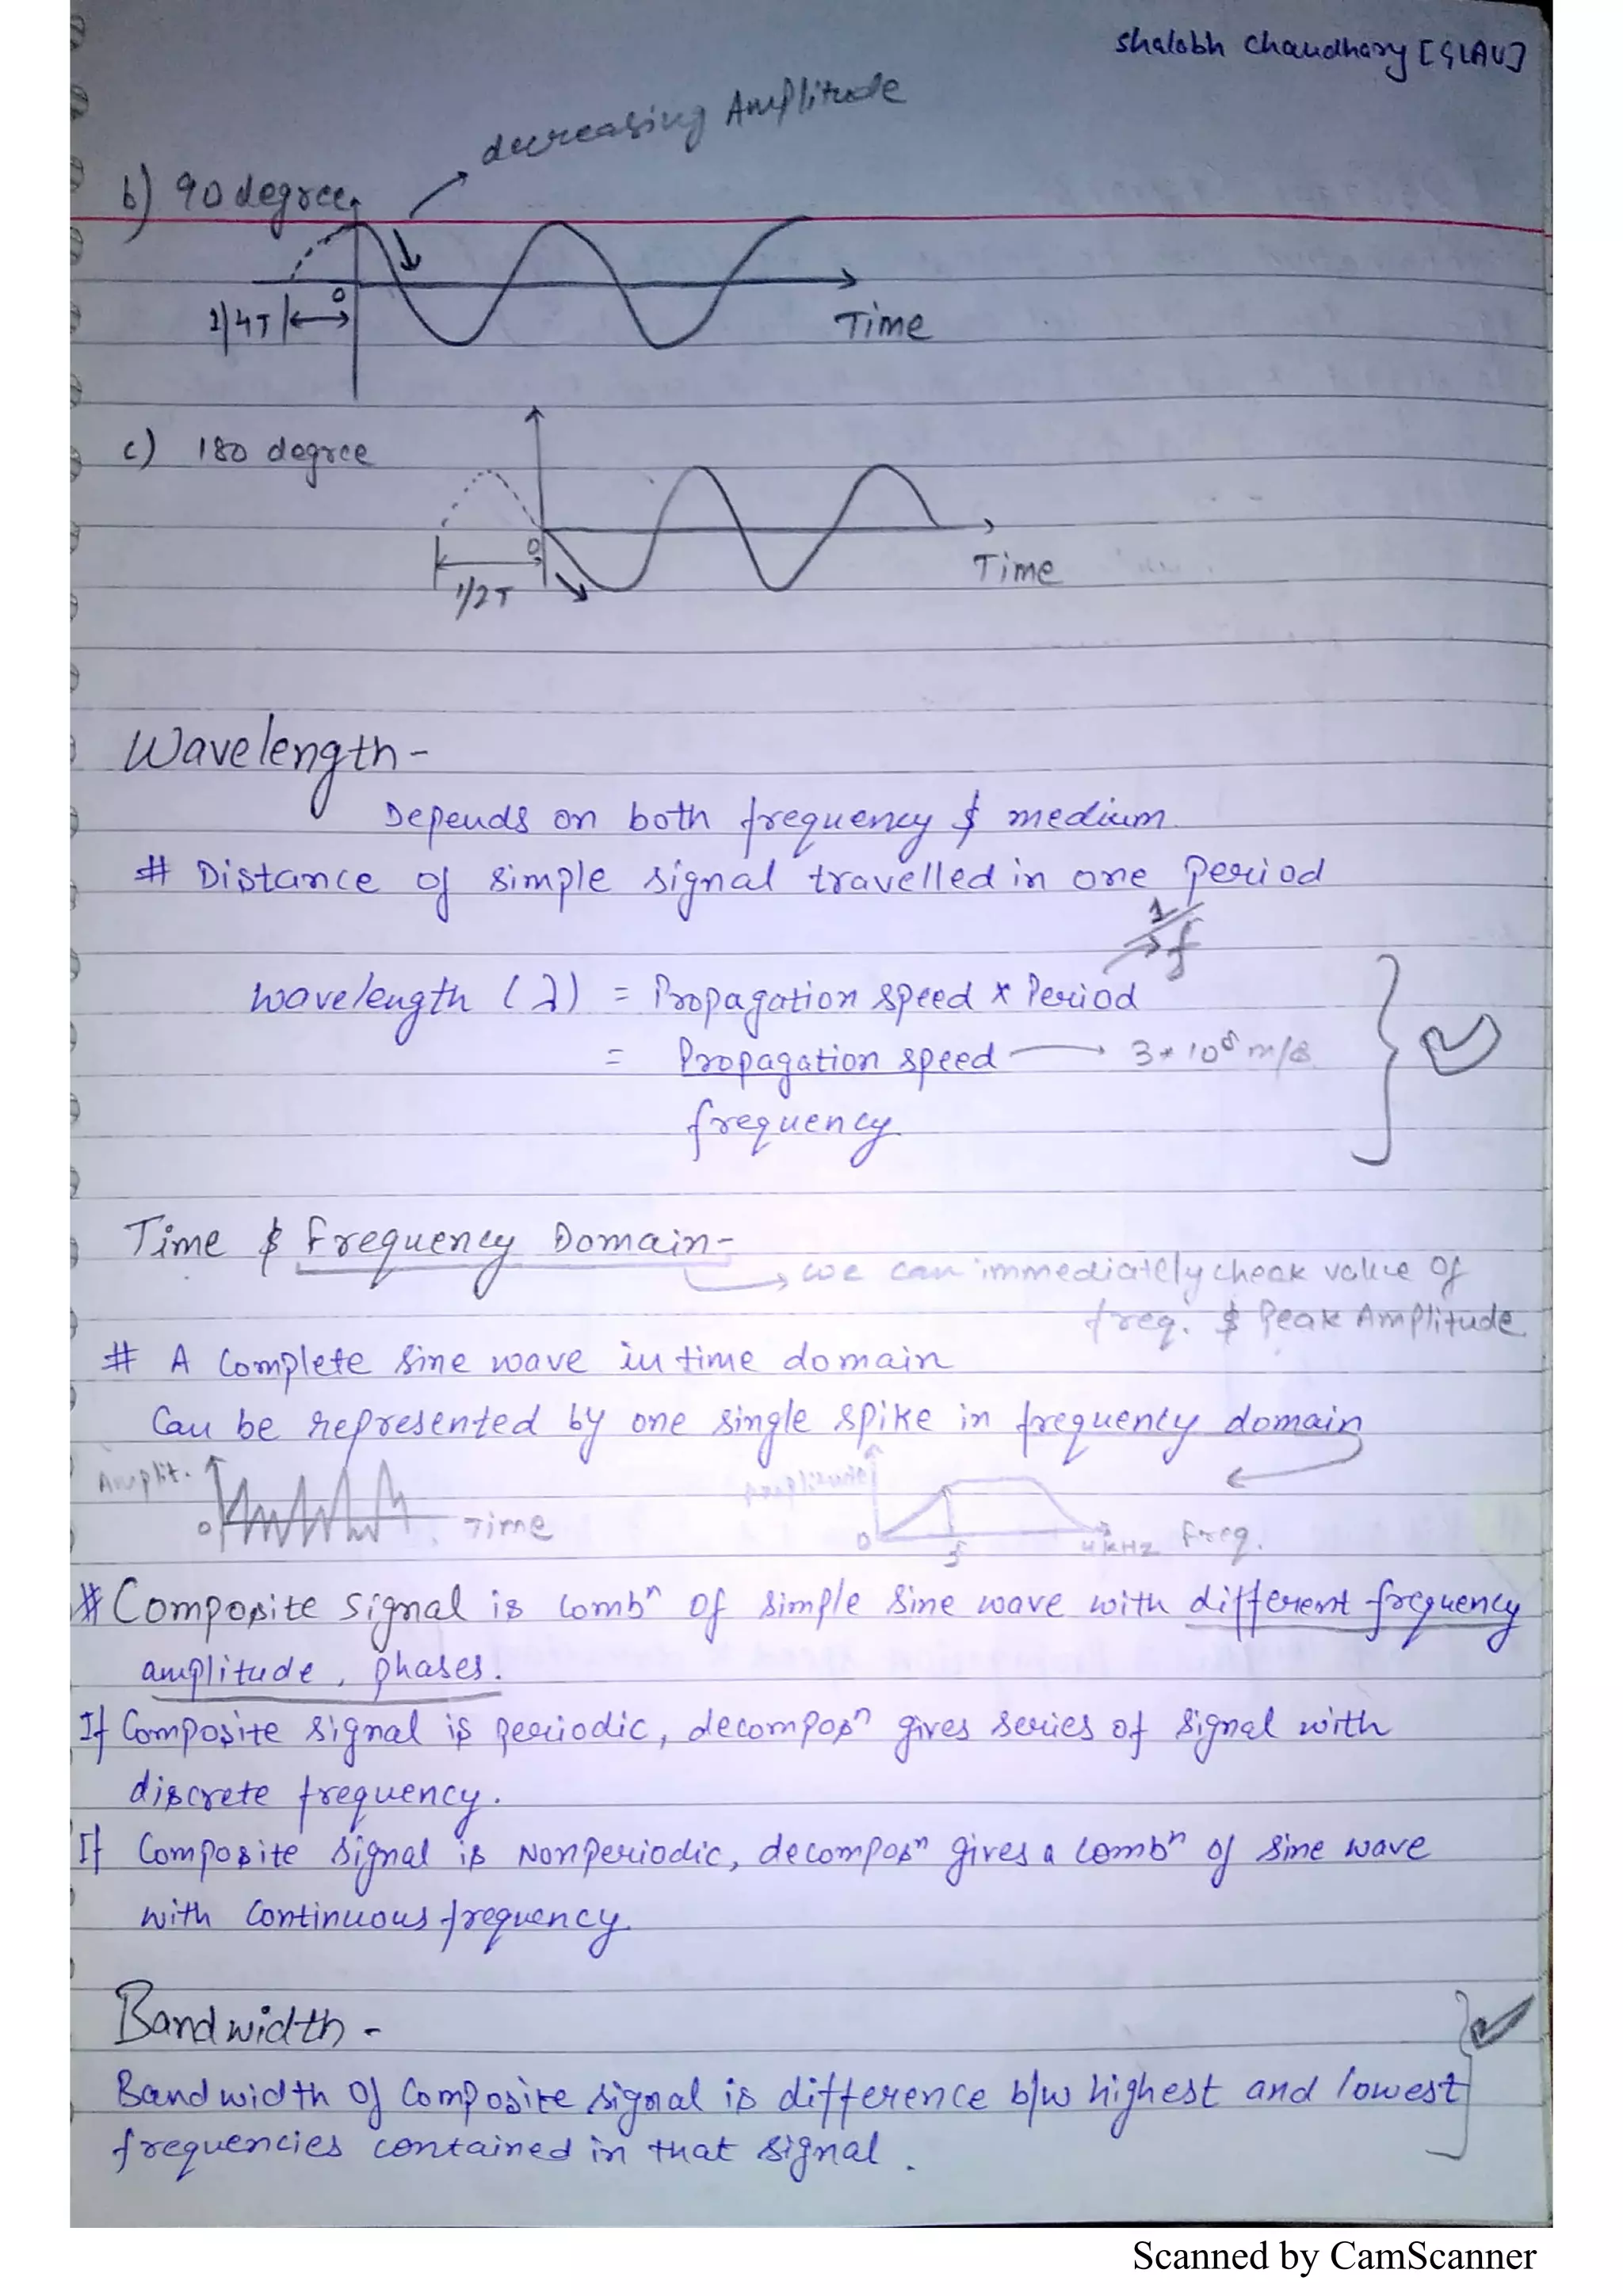 Shalabh Chaudhary [GLAU]
decreasing Amplitude
b) 90 degree
0
1/4T
Time
c) 180 degree
0
1/2T
Time
Wavelength -
Depends on both frequency & medium
# Distance of simple signal travelled in one period
1/f
wavelength (λ) = Propagation speed × Period
= Propagation speed → 3*10⁸ m/s
frequency
Time & Frequency Domain -
→ we can immediately check value of
freq. & Peak Amplitude
# A Complete sine wave in time domain
Can be represented by one single spike in frequency domain
Amplit.
0
Time
Amplitude
0
4kHz
Freq.
# Composite signal is combⁿ of simple sine wave with different frequency
amplitude, phases.
If Composite signal is periodic, decomposⁿ gives series of signal with
discrete frequency.
If Composite signal is Nonperiodic, decomposⁿ gives a combⁿ of sine wave
with Continuous frequency
Bandwidth -
Bandwidth of Composite signal is difference b/w highest and lowest
frequencies contained in that signal.
Scanned by CamScanner